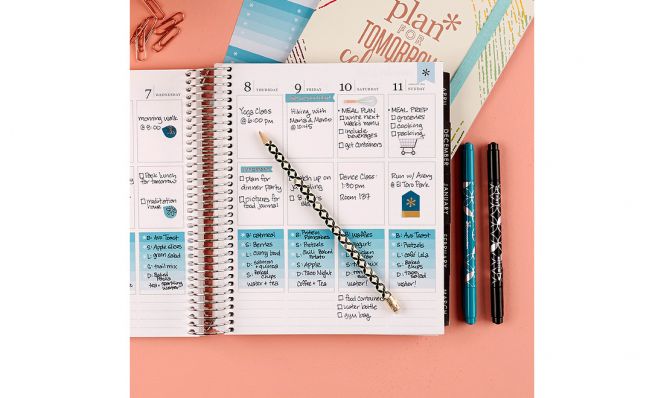 plan*
FOR
TOMORROW
7
WEDNESDAY
8 THURSDAY
9 FRIDAY
10 SATURDAY
11 SUNDAY
APRIL
DECEMBER
JANUARY
FEBRUARY
MARCH
morning walk
@ 8:00
Pack lunch
for tomorrow
meditation
B: Avo Toast
S: Apple slices
L: green salad
S: trail mix
D: Baked
tea + sparkling
water
Yoga Class
@ 6:00 pm
plan for
dinner party
pictures for
food journal
B: oatmeal
S: Berries
L: curry bowl
D: salmon
Baked
Chips
water + tea
Hiking with
Maria & Marco
@ 10:45
up on
B: Protein
Pancakes
S: Pretzels
L: Chili Baked
Potato
S: Apple
D: Taco Night
Coffee + Tea
MEAL PLAN
write next
week's menu
include
beverages
get containers
Dance Class
1:30 pm
Room 187
B: Waffles
yogurt
D:
water!
food containers
water bottle
gym bag
MEAL PREP
groceries
cooking
packing
Run w/ Avery
@ El Toro Park
B: Avo Toast
S: Pretzels
L:
S: Baked
Chips
D: trail mix
water!